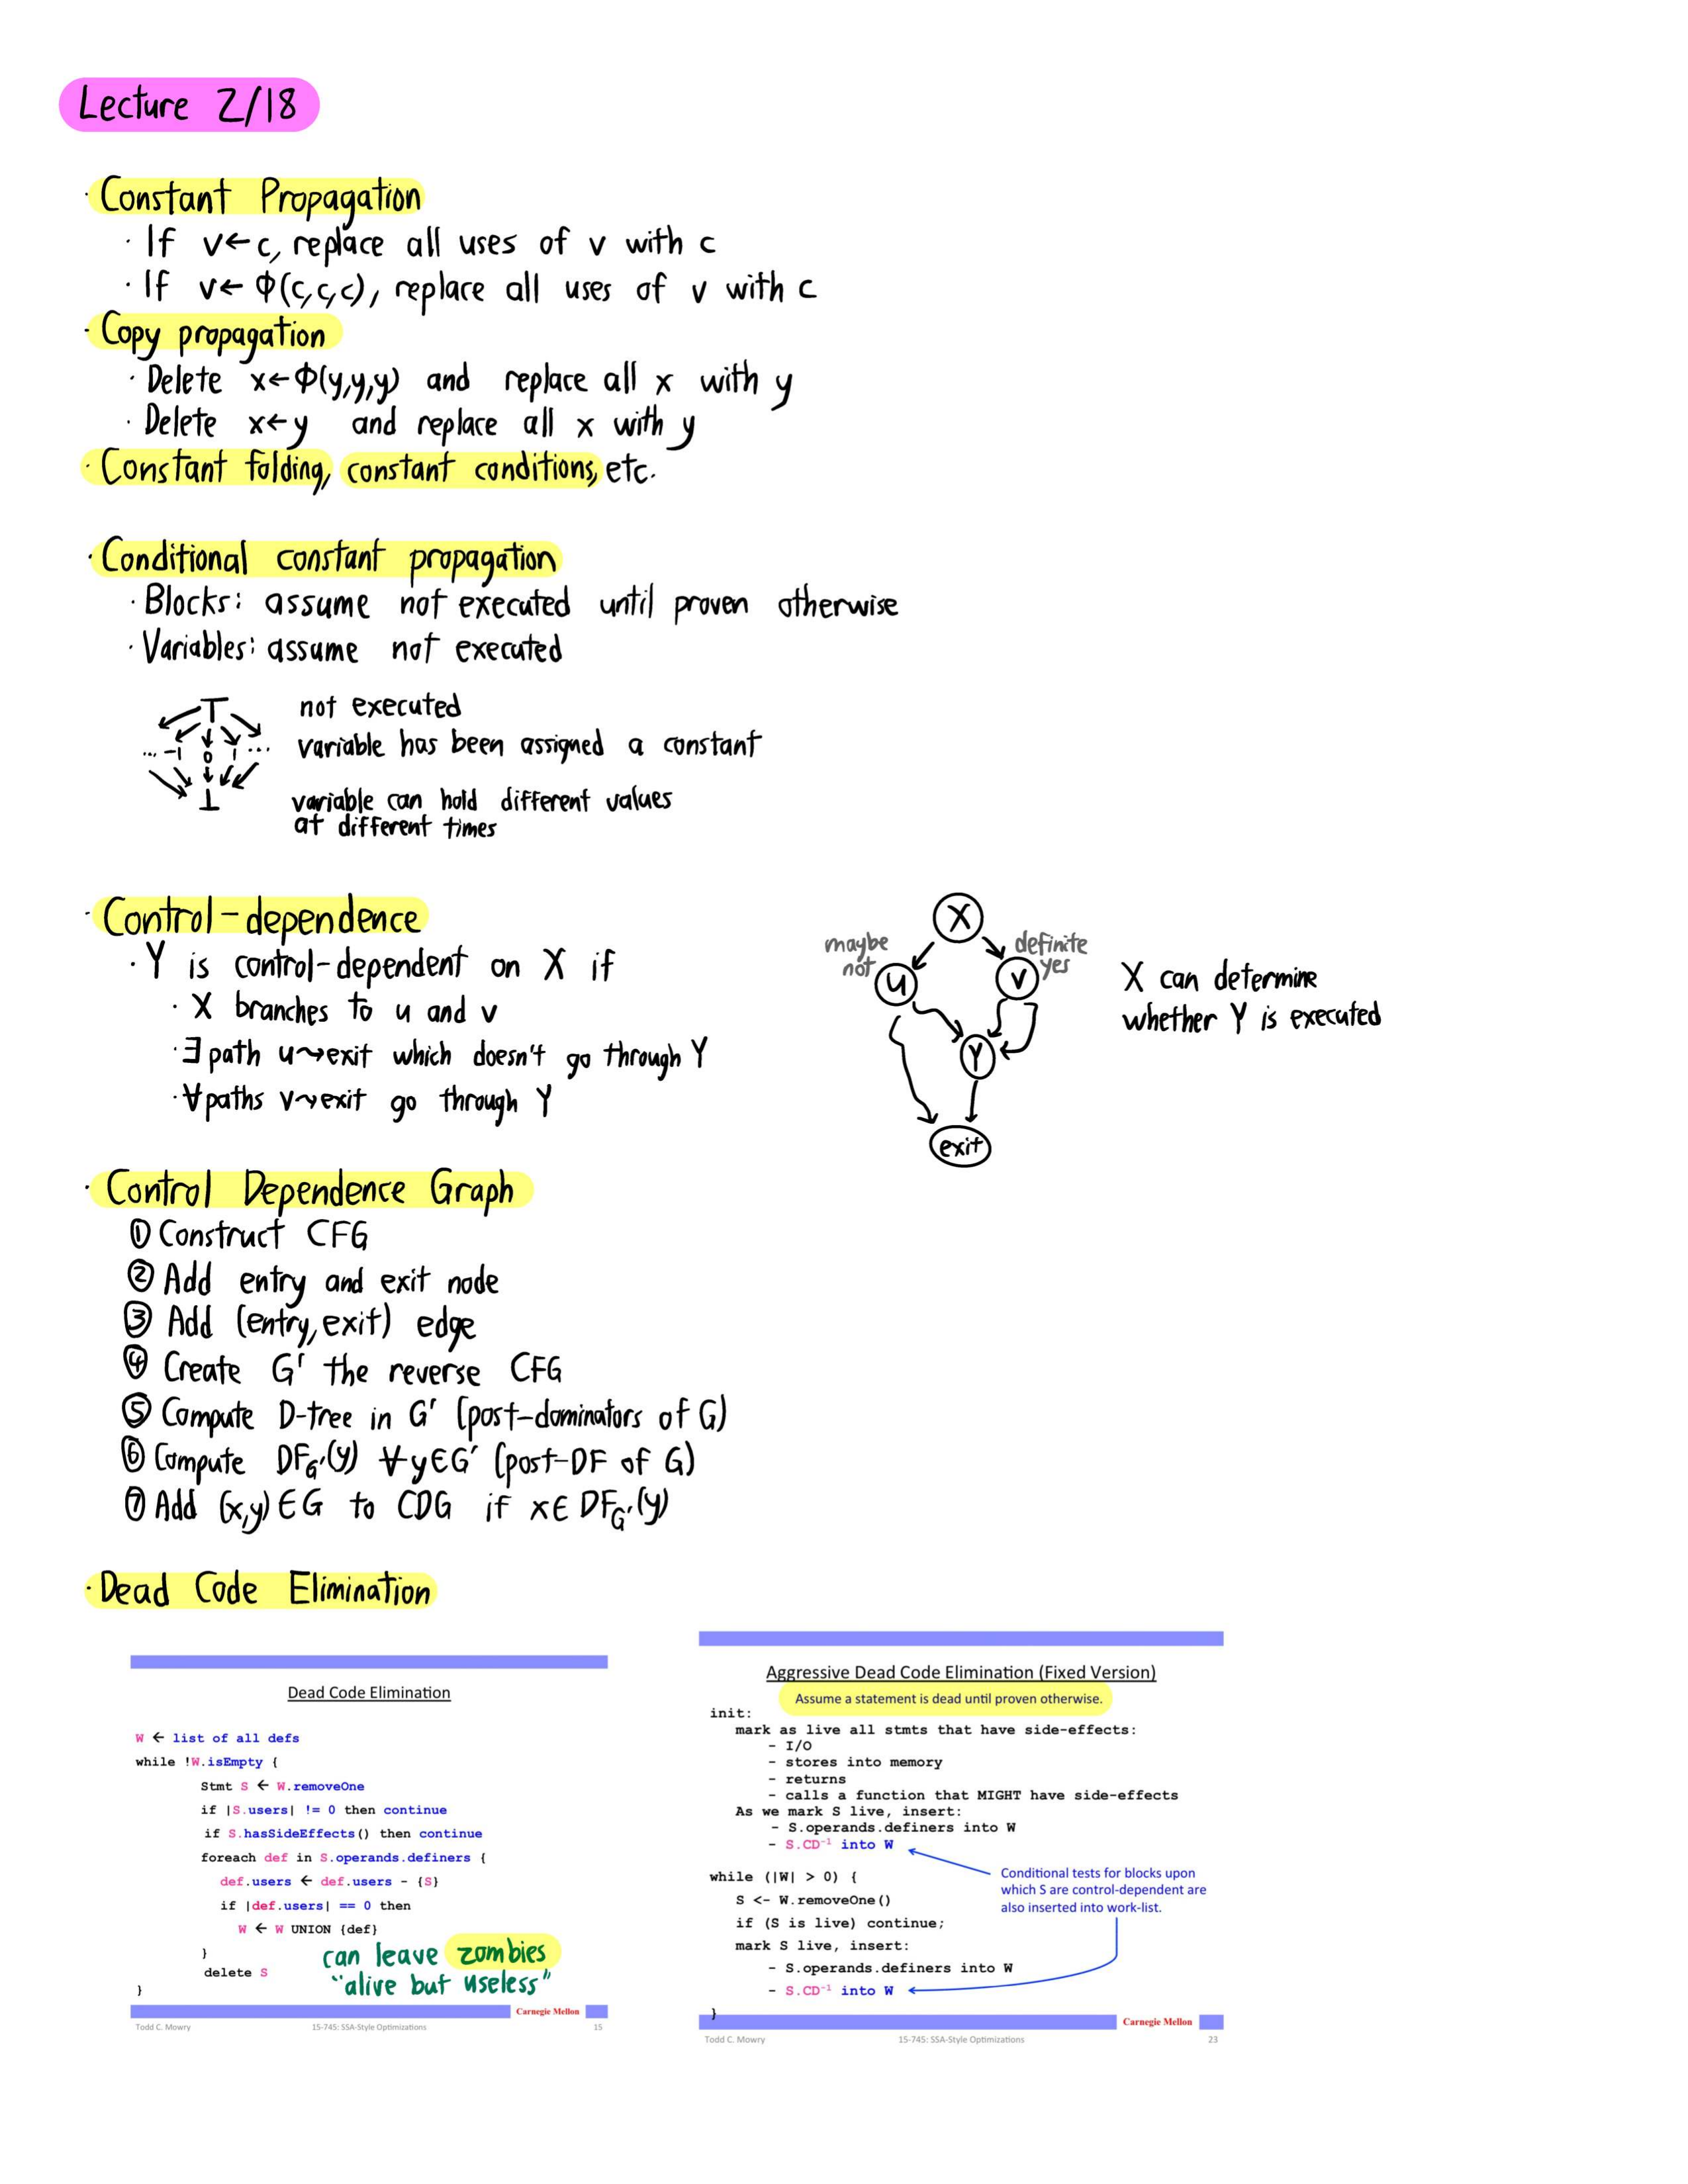 Lecture 2/18
· Constant Propagation
· If v←c, replace all uses of v with c
· If v← Φ(c,c,c), replace all uses of v with c
· Copy propagation
· Delete x←Φ(y,y,y) and replace all x with y
· Delete x←y and replace all x with y
· Constant folding, constant conditions, etc.
· Conditional constant propagation
· Blocks: assume not executed until proven otherwise
· Variables: assume not executed
⊤ not executed
... -1 0 1 ... variable has been assigned a constant
⊥ variable can hold different values
at different times
· Control-dependence
· Y is control-dependent on X if
· X branches to u and v
· ∃ path u⤳exit which doesn't go through Y
· ∀paths v⤳exit go through Y
X
maybe
not
definite
yes
u
v
Y
exit
X can determine
whether Y is executed
· Control Dependence Graph
① Construct CFG
② Add entry and exit node
③ Add (entry, exit) edge
④ Create G' the reverse CFG
⑤ Compute D-tree in G' (post-dominators of G)
⑥ Compute DF_G'(y) ∀y∈G' (post-DF of G)
⑦ Add (x,y)∈G to CDG if x∈ DF_G'(y)
· Dead Code Elimination
Dead Code Elimination
W ← list of all defs
while !W.isEmpty {
Stmt S ← W.removeOne
if |S.users| != 0 then continue
if S.hasSideEffects() then continue
foreach def in S.operands.definers {
def.users ← def.users - {S}
if |def.users| == 0 then
W ← W UNION {def}
}
delete S
}
can leave zombies
"alive but useless"
Carnegie Mellon
Todd C. Mowry 15-745: SSA-Style Optimizations 15
Aggressive Dead Code Elimination (Fixed Version)
Assume a statement is dead until proven otherwise.
init:
mark as live all stmts that have side-effects:
- I/O
- stores into memory
- returns
- calls a function that MIGHT have side-effects
As we mark S live, insert:
- S.operands.definers into W
- S.CD⁻¹ into W
while (|W| > 0) {
S <- W.removeOne()
if (S is live) continue;
mark S live, insert:
- S.operands.definers into W
- S.CD⁻¹ into W
}
Conditional tests for blocks upon
which S are control-dependent are
also inserted into work-list.
Carnegie Mellon
Todd C. Mowry 15-745: SSA-Style Optimizations 23